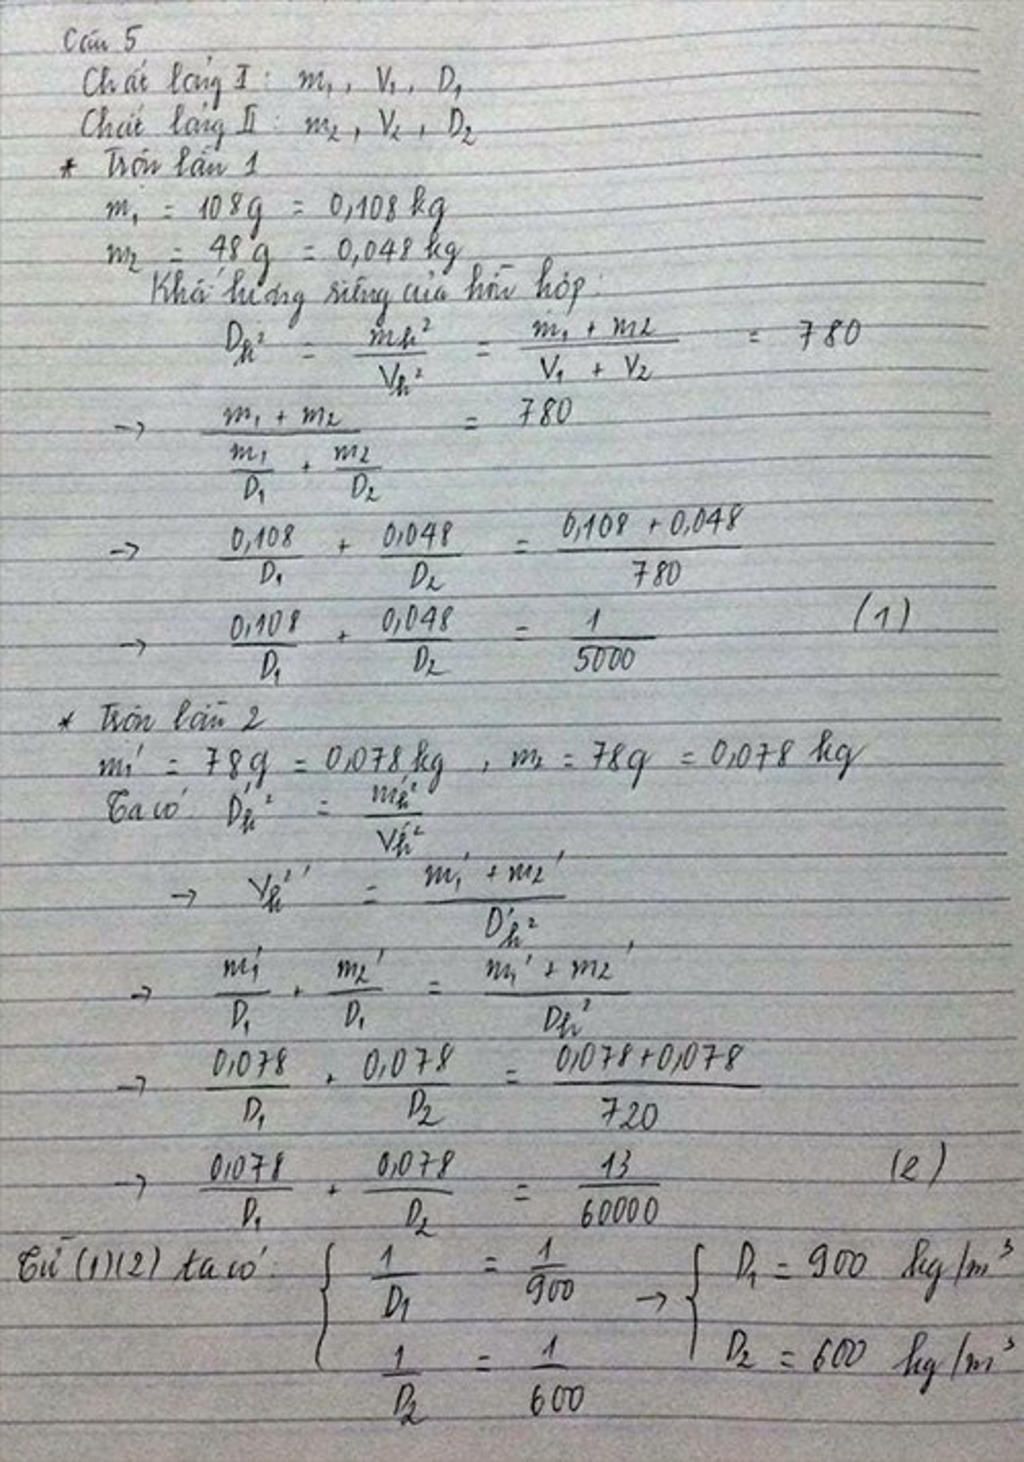 Câu 5
Chất lỏng I : m₁, V₁, D₁
Chất lỏng II : m₂, V₂, D₂
* Trộn lần 1
m₁ = 108g = 0,108 kg
m₂ = 48g = 0,048 kg
Khối lượng riêng của hỗn hợp :
D_h² = m_h²/V_h² = (m₁ + m₂)/(V₁ + V₂) = 780
→ (m₁ + m₂)/(m₁/D₁ + m₂/D₂) = 780
→ 0,108/D₁ + 0,048/D₂ = (0,108 + 0,048)/780
→ 0,108/D₁ + 0,048/D₂ = 1/5000 (1)
* Trộn lần 2
m₁' = 78g = 0,078 kg , m₂ = 78g = 0,078 kg
Ta có D'_h² = m'_h²/V'_h²
→ V_h²' = (m₁' + m₂')/D'_h²
→ m₁'/D₁ + m₂'/D₁ = (m₁' + m₂')/D_h²'
→ 0,078/D₁ + 0,078/D₂ = (0,078+0,078)/720
→ 0,078/D₁ + 0,078/D₂ = 13/60000 (2)
Từ (1)(2) ta có : { 1/D₁ = 1/900 → { D₁ = 900 kg/m³
1/D₂ = 1/600 D₂ = 600 kg/m³